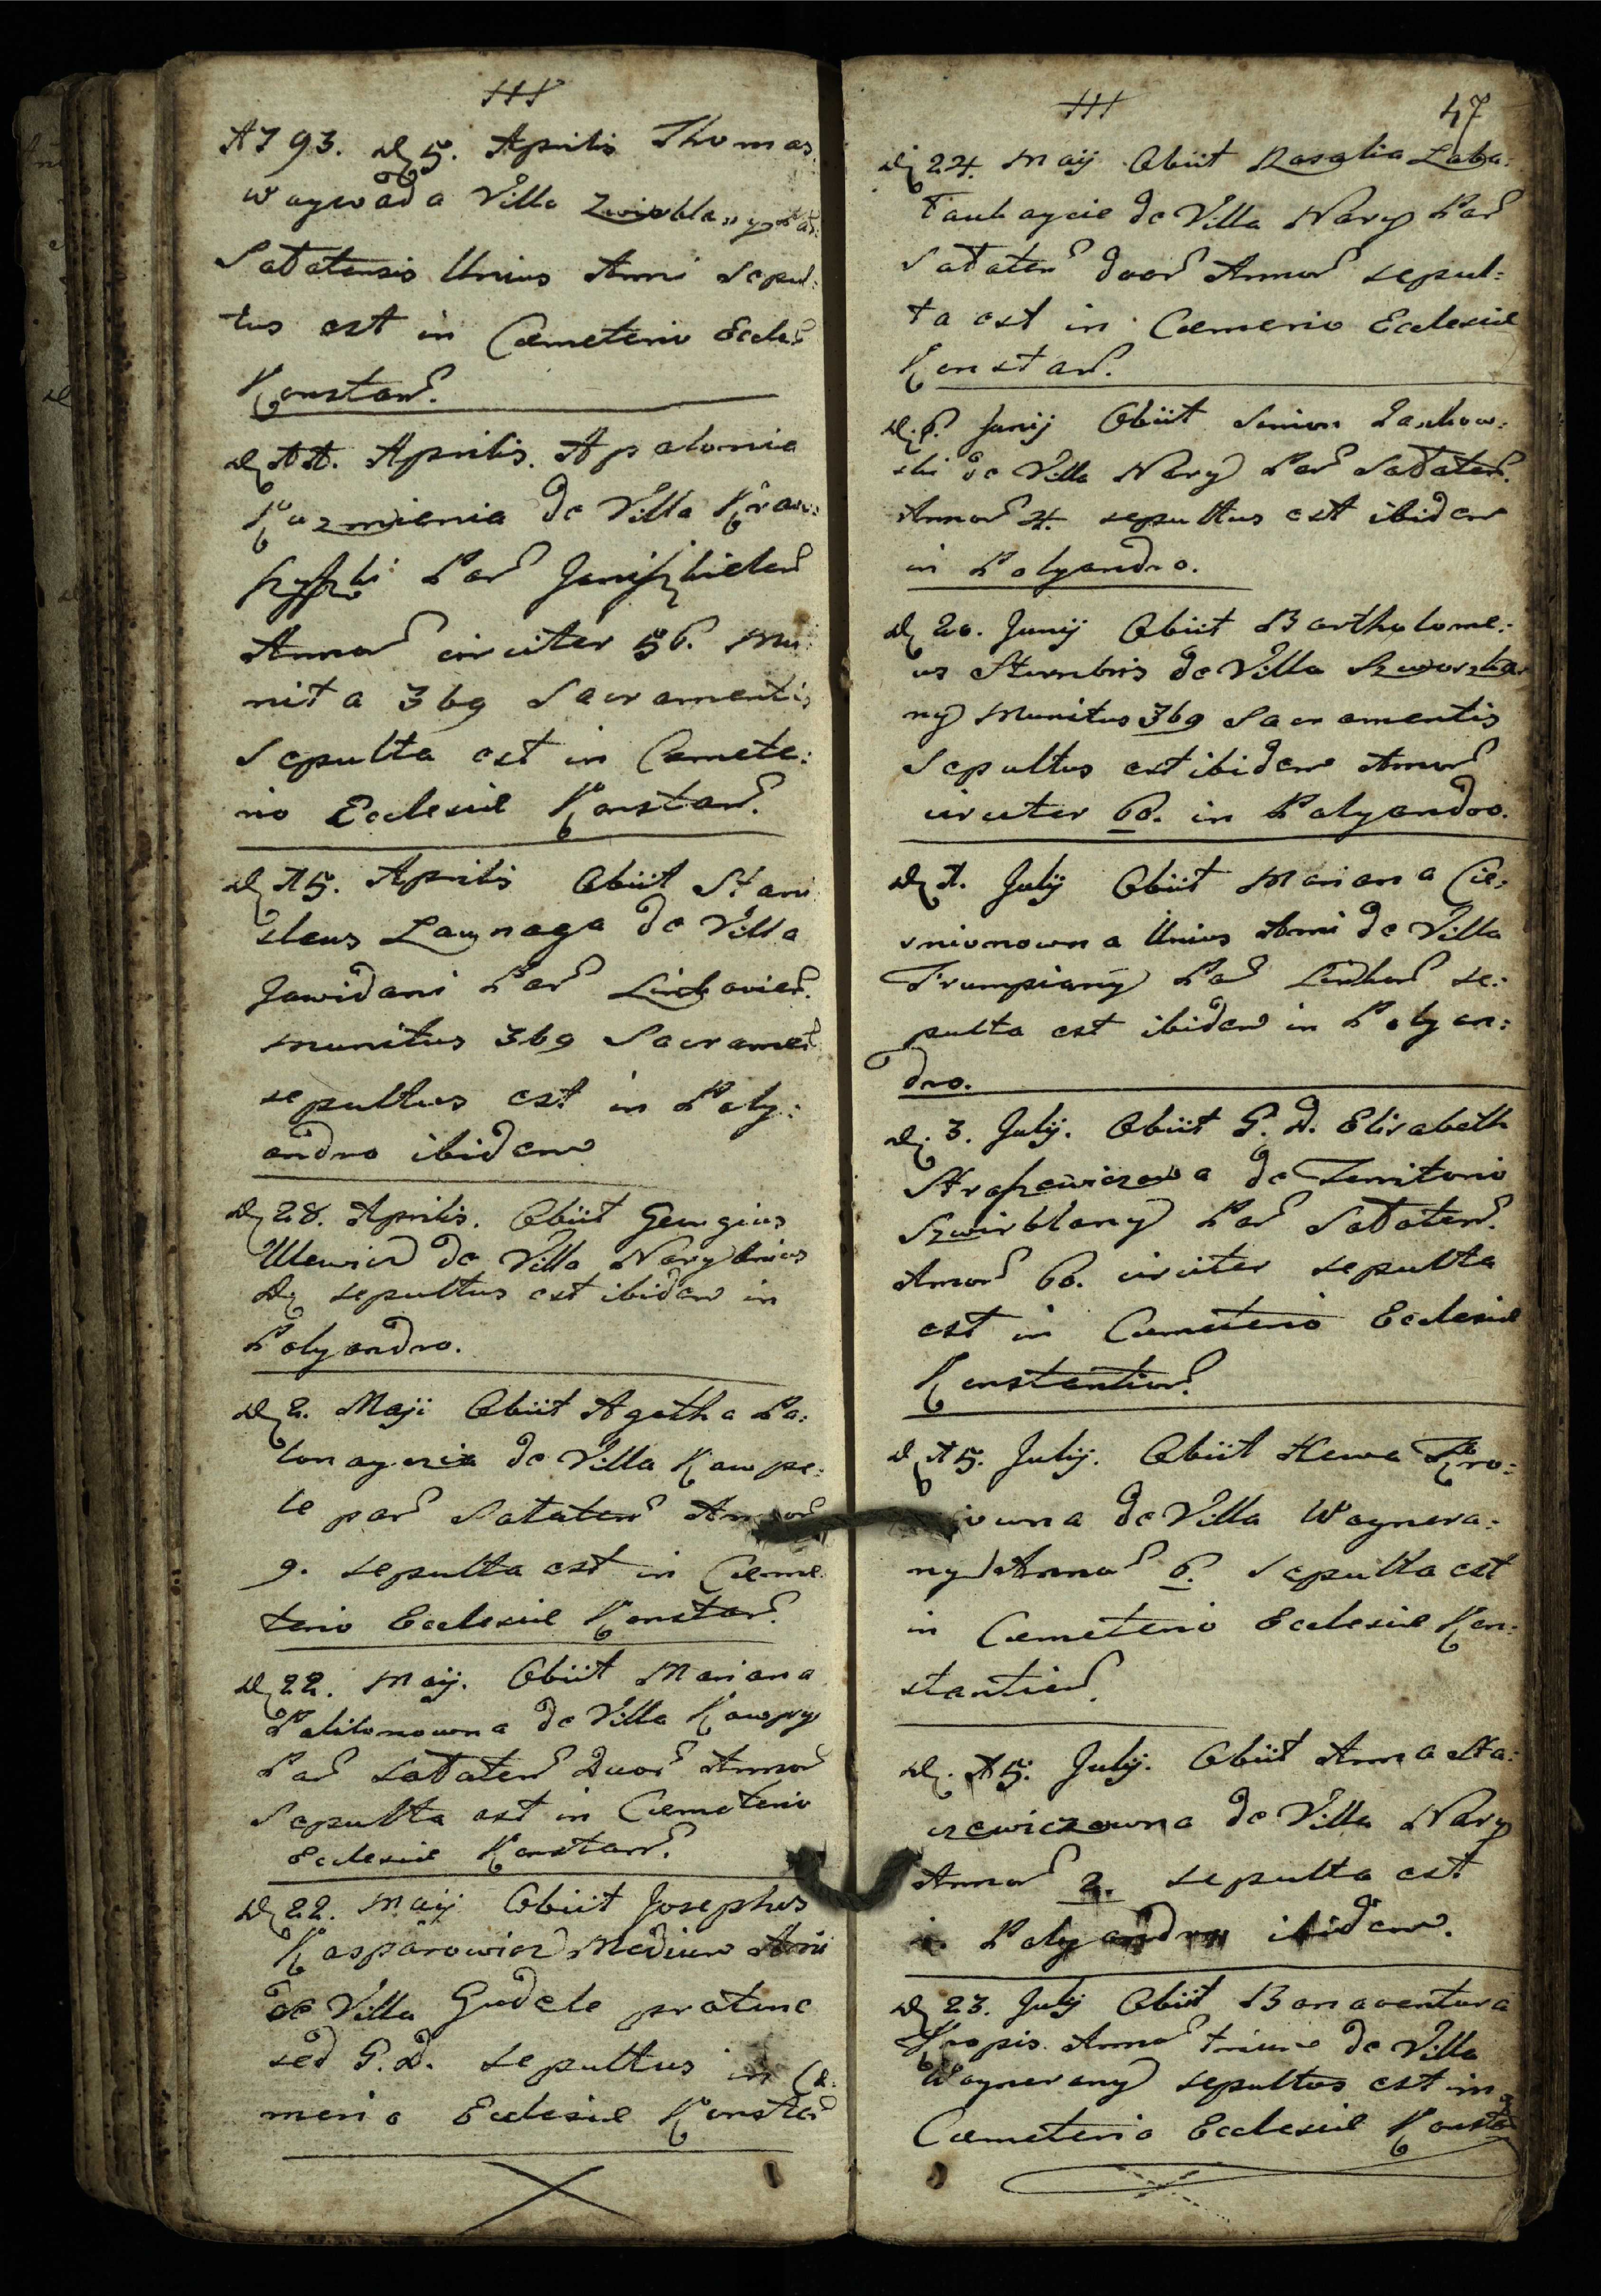 1793. D 5. Aprilis Thomas
Waywada Villa Zwirblany Par:
Satatensis Unius Anni Sepul:
tus est in Cœmeterio Eccles
Konstan.
D 11. Aprilis. Apalonia
Kuzmienia de Villa Kraw:
Par Janiszkielen
Annor circiter 56. Mu:
nita 3bg Sacramentis
Sepulta est in Cœmete:
rio Ecclesiæ Konstan.
D 15. Aprilis Obiit Stani
slaus Launaga de Villa
Jawidani Par Linkovien.
munitus 3bg Sacramet
sepultus est in Poly:
andro ibidem
D 28. Aprilis. Obiit Georgius
Ulewicz de Villa Nary Unius
D sepultus est ibidem in
Polyandro.
D 2. Maji Obiit Agatha Pa:
lonaycia de Villa Kawpe:
le par Sataten Annor
9. sepulta est in Cœme:
terio Ecclesiæ Konstan.
D 22. Maij. Obiit Mariana
Palilonowna de Villa Kawpy
Par Sataten Duor Annor
Sepulta est in Cœmeterio
Ecclesiæ Konstan.
D 22. Maij Obiit Josephus
Kasparowicz Medium Ani
de Villa Gudele pratunc
sed G.D. sepultus in Cœ:
merio Ecclesiæ Konstan
47
D 24. Maij Obiit Rosalia Laba:
Taukaycie de Villa Nary Par
Sataten duor Annor sepul:
ta est in Cœmerio Ecclesiæ
Konstan.
D. 6. Junij Obiit Simon Jankow:
ski de Villa Nary Par Sataten.
Annor 4. sepultus est ibidem
in Polyandro.
D 20. Junij Obiit Bartholome:
us Stumbris de Villa
ny Munitus 3bg Sacramentis
Sepultus est ibidem Annor
circiter 60. in Polyandro.
D 1. Julij Obiit Mariana Cie:
unionowna Unius Anni de Villa
Trumpiany Par Linkov se:
pulta est ibidem in Polyan:
dro.
D. 3. Julij. Obiit G. D. Elisabeth
Straszewiczowa de Territorio
Szwirblany Par Sataten.
Annor 60. circiter sepulta
est in Cœmeterio Ecclesiæ
Konstantin.
D 15. Julij. Obiit Hewa Kro:
iowna de Villa Waynera:
ny Annor 6. Sepulta est
in Cœmeterio Ecclesiæ Kon:
stantien.
D. 15. Julij. Obiit Anna Sta:
szewiczowna de Villa Nary
Annor 2. sepulta est
in Polyandro ibidem.
D 23. Julij Obiit Bonaventura
Kropis. Annor trium de Villa
Waynerany sepultus est in
Cœmeterio Ecclesiæ Konstan